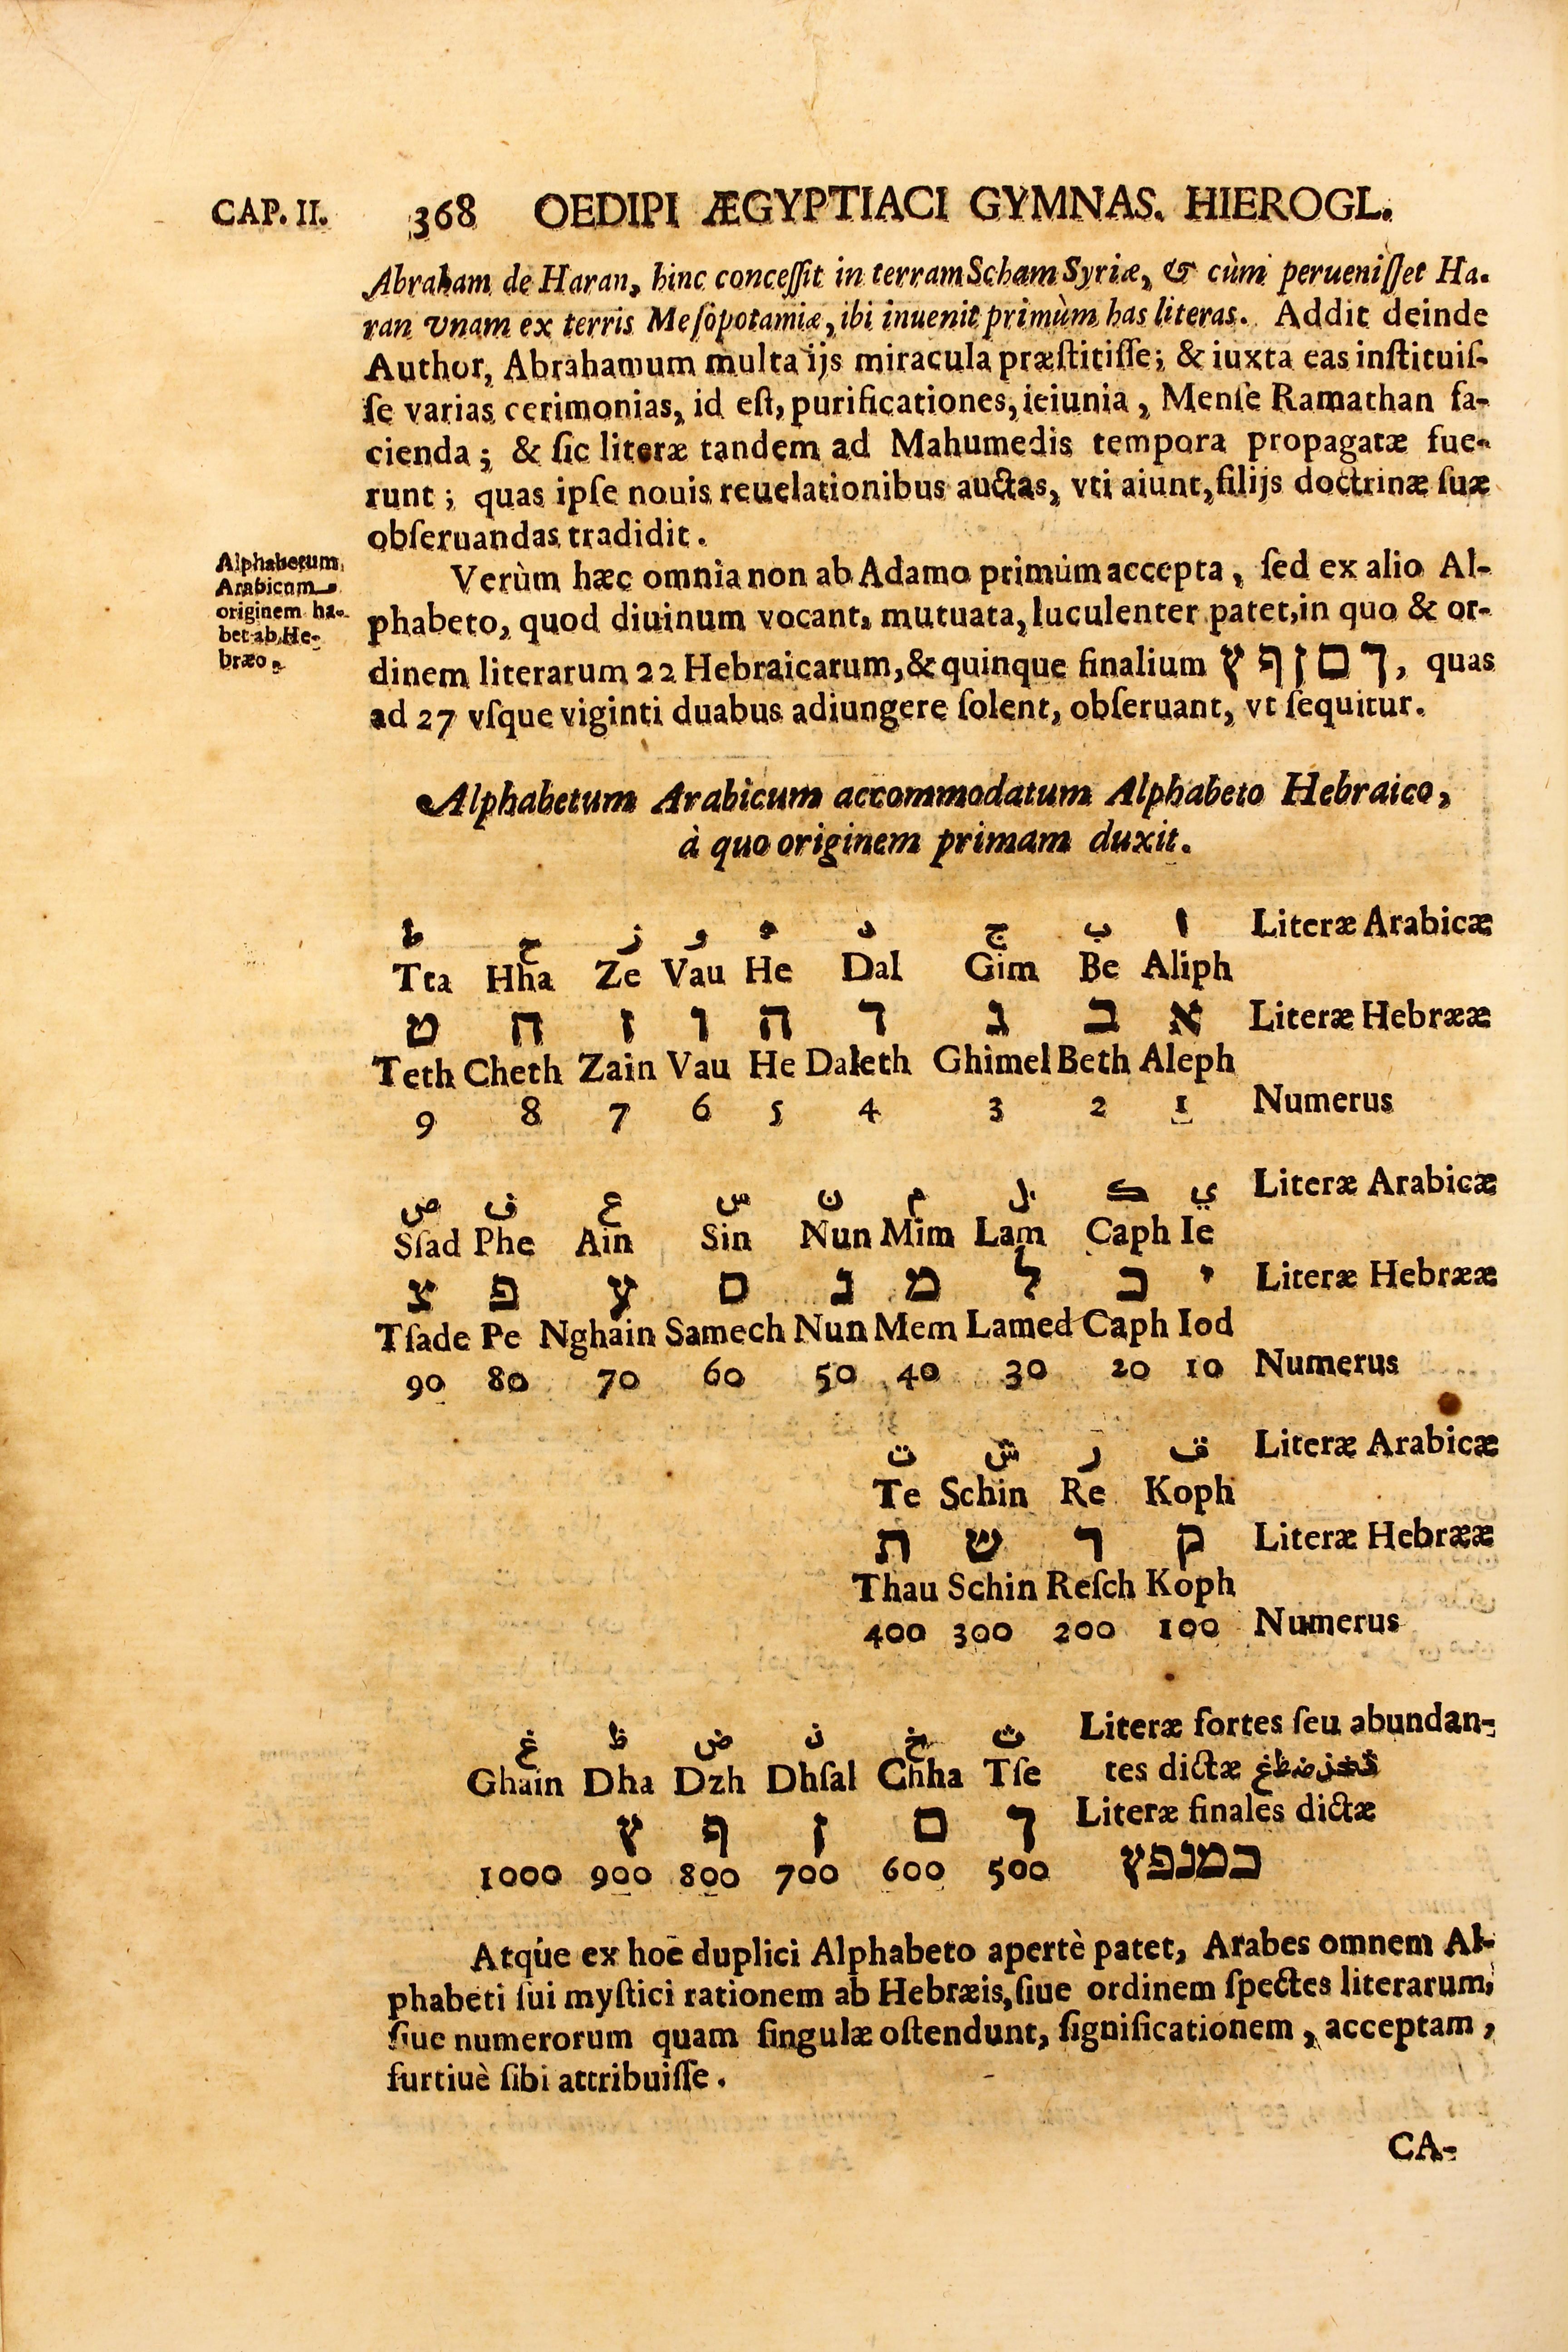 CAP. II. 368 OEDIPI ÆGYPTIACI GYMNAS. HIEROGL.
Abraham de Haran, hinc conceſſit in terram Scham Syriæ, & cùm perueniſſet Ha-
ran vnam ex terris Meſopotamiæ, ibi inuenit primùm has literas. Addit deinde
Author, Abrahamum multa ijs miracula præſtitiſſe; & iuxta eas inſtituiſ-
ſe varias cerimonias, id eſt, purificationes, ieiunia, Menſe Ramathan fa-
cienda; & ſic literæ tandem ad Mahumedis tempora propagatæ fue-
runt; quas ipſe nouis reuelationibus auctas, vti aiunt, filijs doctrinæ ſuæ
obſeruandas tradidit.
Alphabetum
Arabicum
originem ha-
bet ab He-
bræo.
Verùm hæc omnia non ab Adamo primùm accepta, ſed ex alio Al-
phabeto, quod diuinum vocant, mutuata, luculenter patet, in quo & or-
dinem literarum 22 Hebraicarum, & quinque finalium ך ם ן ף ץ, quas
ad 27 vſque viginti duabus adiungere ſolent, obſeruant, vt ſequitur.
Alphabetum Arabicum accommodatum Alphabeto Hebraico,
à quo originem primam duxit.
ا ب ج د ه و ز ح ط Literæ Arabicæ
Tta Hha Ze Vau He Dal Gim Be Aliph
א ב ג ד ה ו ז ח ט Literæ Hebrææ
Teth Cheth Zain Vau He Daleth Ghimel Beth Aleph
9 8 7 6 5 4 3 2 1 Numerus
ي ك ل م ن س ع ف ص Literæ Arabicæ
Sſad Phe Ain Sin Nun Mim Lam Caph Ie
י כ ל מ נ ס ע פ צ Literæ Hebrææ
Tſade Pe Nghain Samech Nun Mem Lamed Caph Iod
90 80 70 60 50 40 30 20 10 Numerus
ق ر ش ت Literæ Arabicæ
Te Schin Re Koph
ק ר ש ת Literæ Hebrææ
Thau Schin Reſch Koph
400 300 200 100 Numerus
ث خ ذ ض ظ غ Literæ fortes ſeu abundan-
Ghain Dha Dzh Dhſal Chha Tſe tes dictæ ثخذضظغ
ך ם ן ף ץ Literæ finales dictæ
1000 900 800 700 600 500 כמנפץ
Atque ex hoc duplici Alphabeto apertè patet, Arabes omnem Al-
phabeti ſui myſtici rationem ab Hebræis, ſiue ordinem ſpectes literarum,
ſiue numerorum quam ſingulæ oſtendunt, ſignificationem, acceptam,
furtiuè ſibi attribuiſſe.
CA-